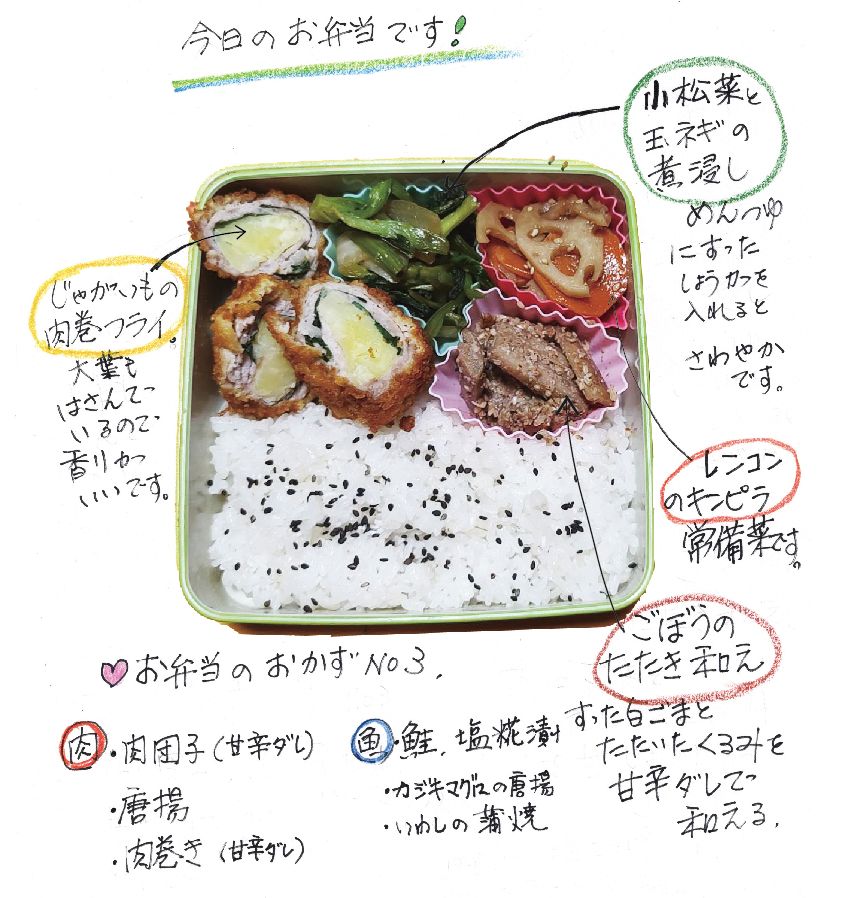 今日のお弁当です!
小松菜と
玉ネギの
煮浸し
めんつゆ
にすった
しょうがを
入れると
さわやか
です。
じゃがいもの
肉巻フライ。
大葉も
はさんで
いるので
香りが
いいです。
レンコン
のキンピラ
常備菜です。
ごぼうの
たたき和え
すった白ごまと
たたいたくるみを
甘辛ダレで
和える。
お弁当のおかずNO3.
肉・肉団子(甘辛ダレ)
・唐揚
・肉巻き(甘辛ダレ)
魚・鮭、塩糀漬
・カジキマグロの唐揚
・いわしの蒲焼